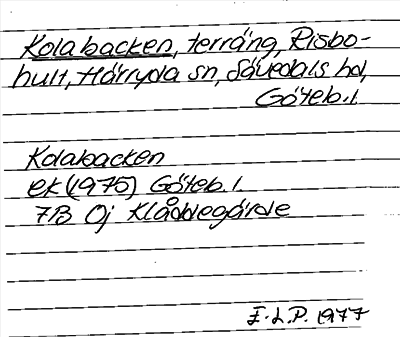 Kolabacken, terräng, Risbo-
hult, Härryda sn, Sävedals hd,
Göteb. l.
Kolabacken
ek (1975) Göteb. l.
7B 0j Klåddegärde
E. L. P. 1977